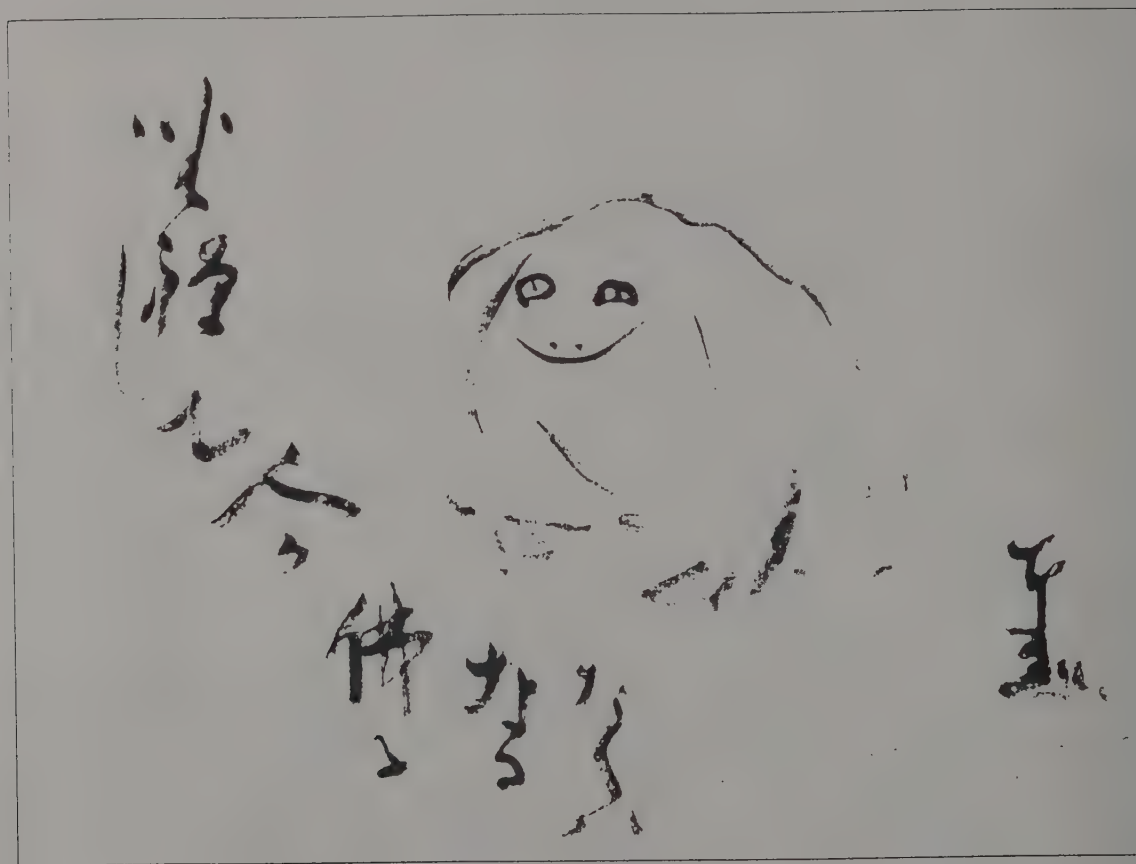 坐禅して人か佛になるならハ